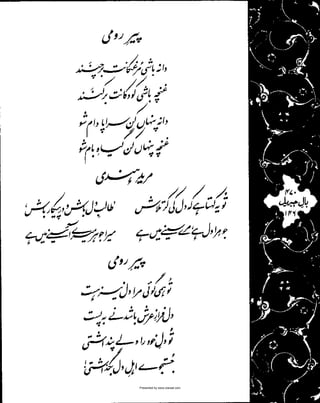 پیرِ رومی
دانہ باشی مرغکانت برچنند
غنچہ باشی کودکانت برکنند
دانہ پنہاں کن سراپا دام شو
غنچہ پنہاں کن گیاہِ بام شو
مریدِ ہندی
تو یہ کہتا ہے کہ دل کی کر تلاش
طالبِ دل باش و در پیکار باش
جو مرا دل ہے مرے سینے میں ہے
میرا جوہر میرے آئینے میں ہے
پیرِ رومی
تو ہمی گوئی مرا دل نیز ہست
دل فرازِ عرش باشد نے بہ پست
تو دلِ خود را دلے پنداشتی
جستجوے اہلِ دل بگذاشتی
۴۷۰
بالِ جبریل
۱۴۶
Presented by www.iqbalal.com